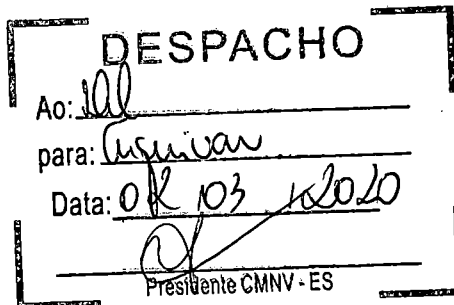 DESPACHO
Ao:
para: Arquivar
Data: 02 / 03 / 2020
Presidente CMNV - ES